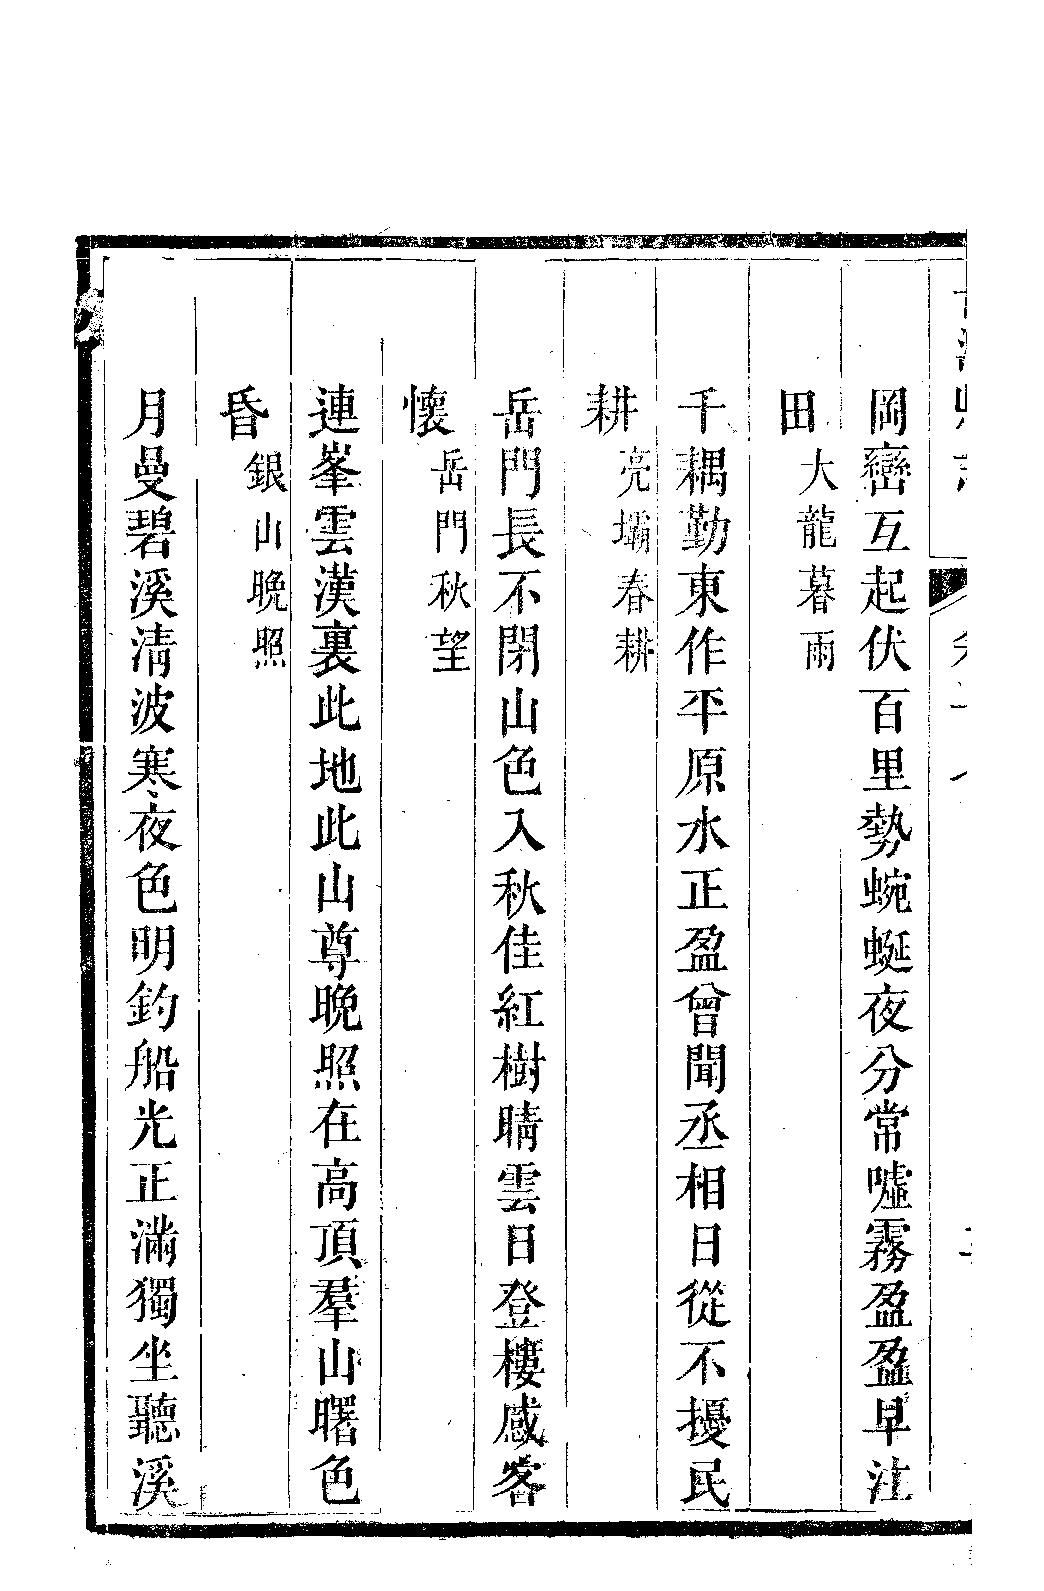 岡巒互起伏百里勢蜿蜒夜分常噓霧盈盈早注
田大龍暮雨
千耦勤東作平原水正盈曾聞丞相日從不擾民
耕亮壩春耕
岳門長不閉山色入秋佳紅樹晴雲日登樓感客
懷岳門秋望
連峯雲漢裏此地此山尊晚照在高頂羣山曙色
昏銀山晚照
月曼碧溪淸波寒夜色明釣船光正滿獨坐聽溪